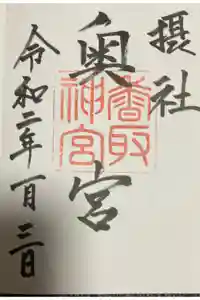 摂社
奥宮
香取神宮
令和二年一月三日